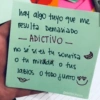 hay algo tuyo que me
resulta demasiado
- ADICTIVO -
no sé si es tu sonrisa
o tu mirada o tus
labios o todo junto